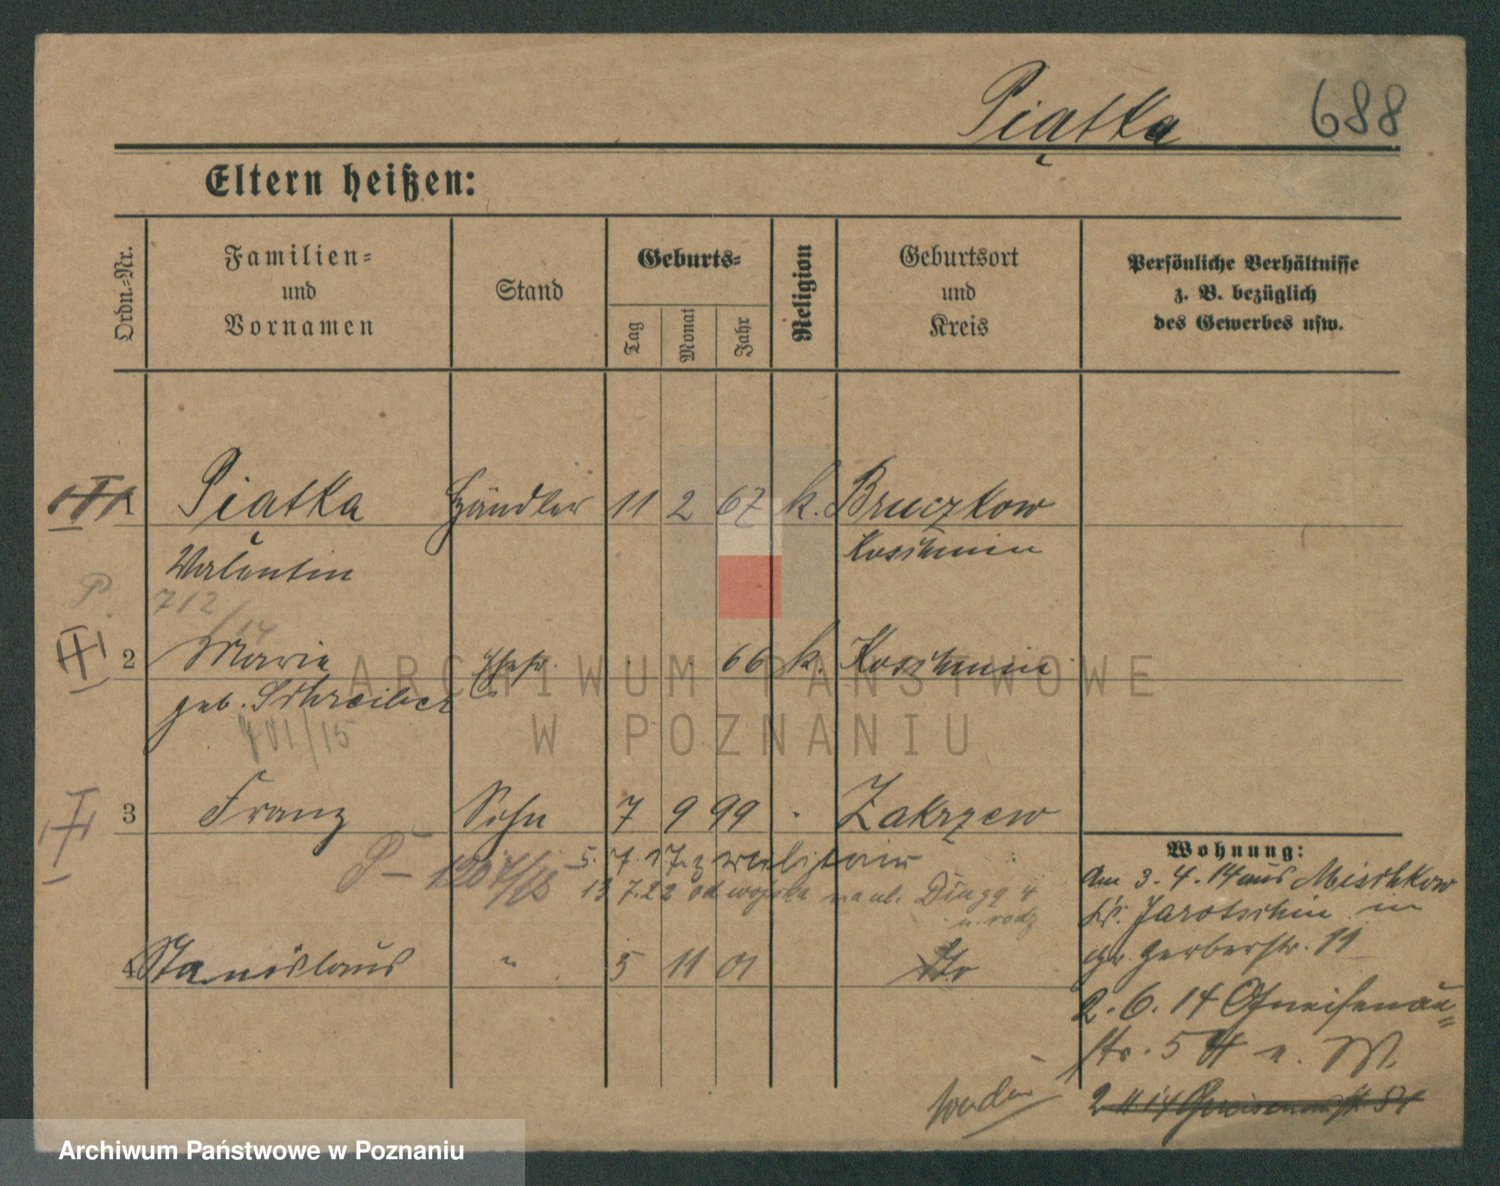 Piątka 688
Eltern heißen:
Ordn.-Nr.
Familien-
und
Vornamen
Stand
Geburts-
Tag
Monat
Jahr
Religion
Geburtsort
und
Kreis
Persönliche Verhältnisse
z. B. bezüglich
des Gewerbes usw.
1 Piątka Händler 11 2 67 k. Bruczkow
Valentin Koschmin
712
2 Marie Ehefr. 66 k. Koschmin
geb. Schreiber
701/15
3 Franz Sohn 7 9 99 Zakrzew
5. 7. 17. z
13.7.22 od wojska na ul. Długą 4
u. rodz
4 Stanislaus " 5 11 01
Wohnung:
Am 3. 4. 14 aus Mischkow
Kr. Jarotschin in
gr. Gerberstr. 11
2. 6. 14 Gneisenau=
str. 5 II u. W.
wenden
ARCHIWUM PAŃSTWOWE
W POZNANIU
Archiwum Państwowe w Poznaniu